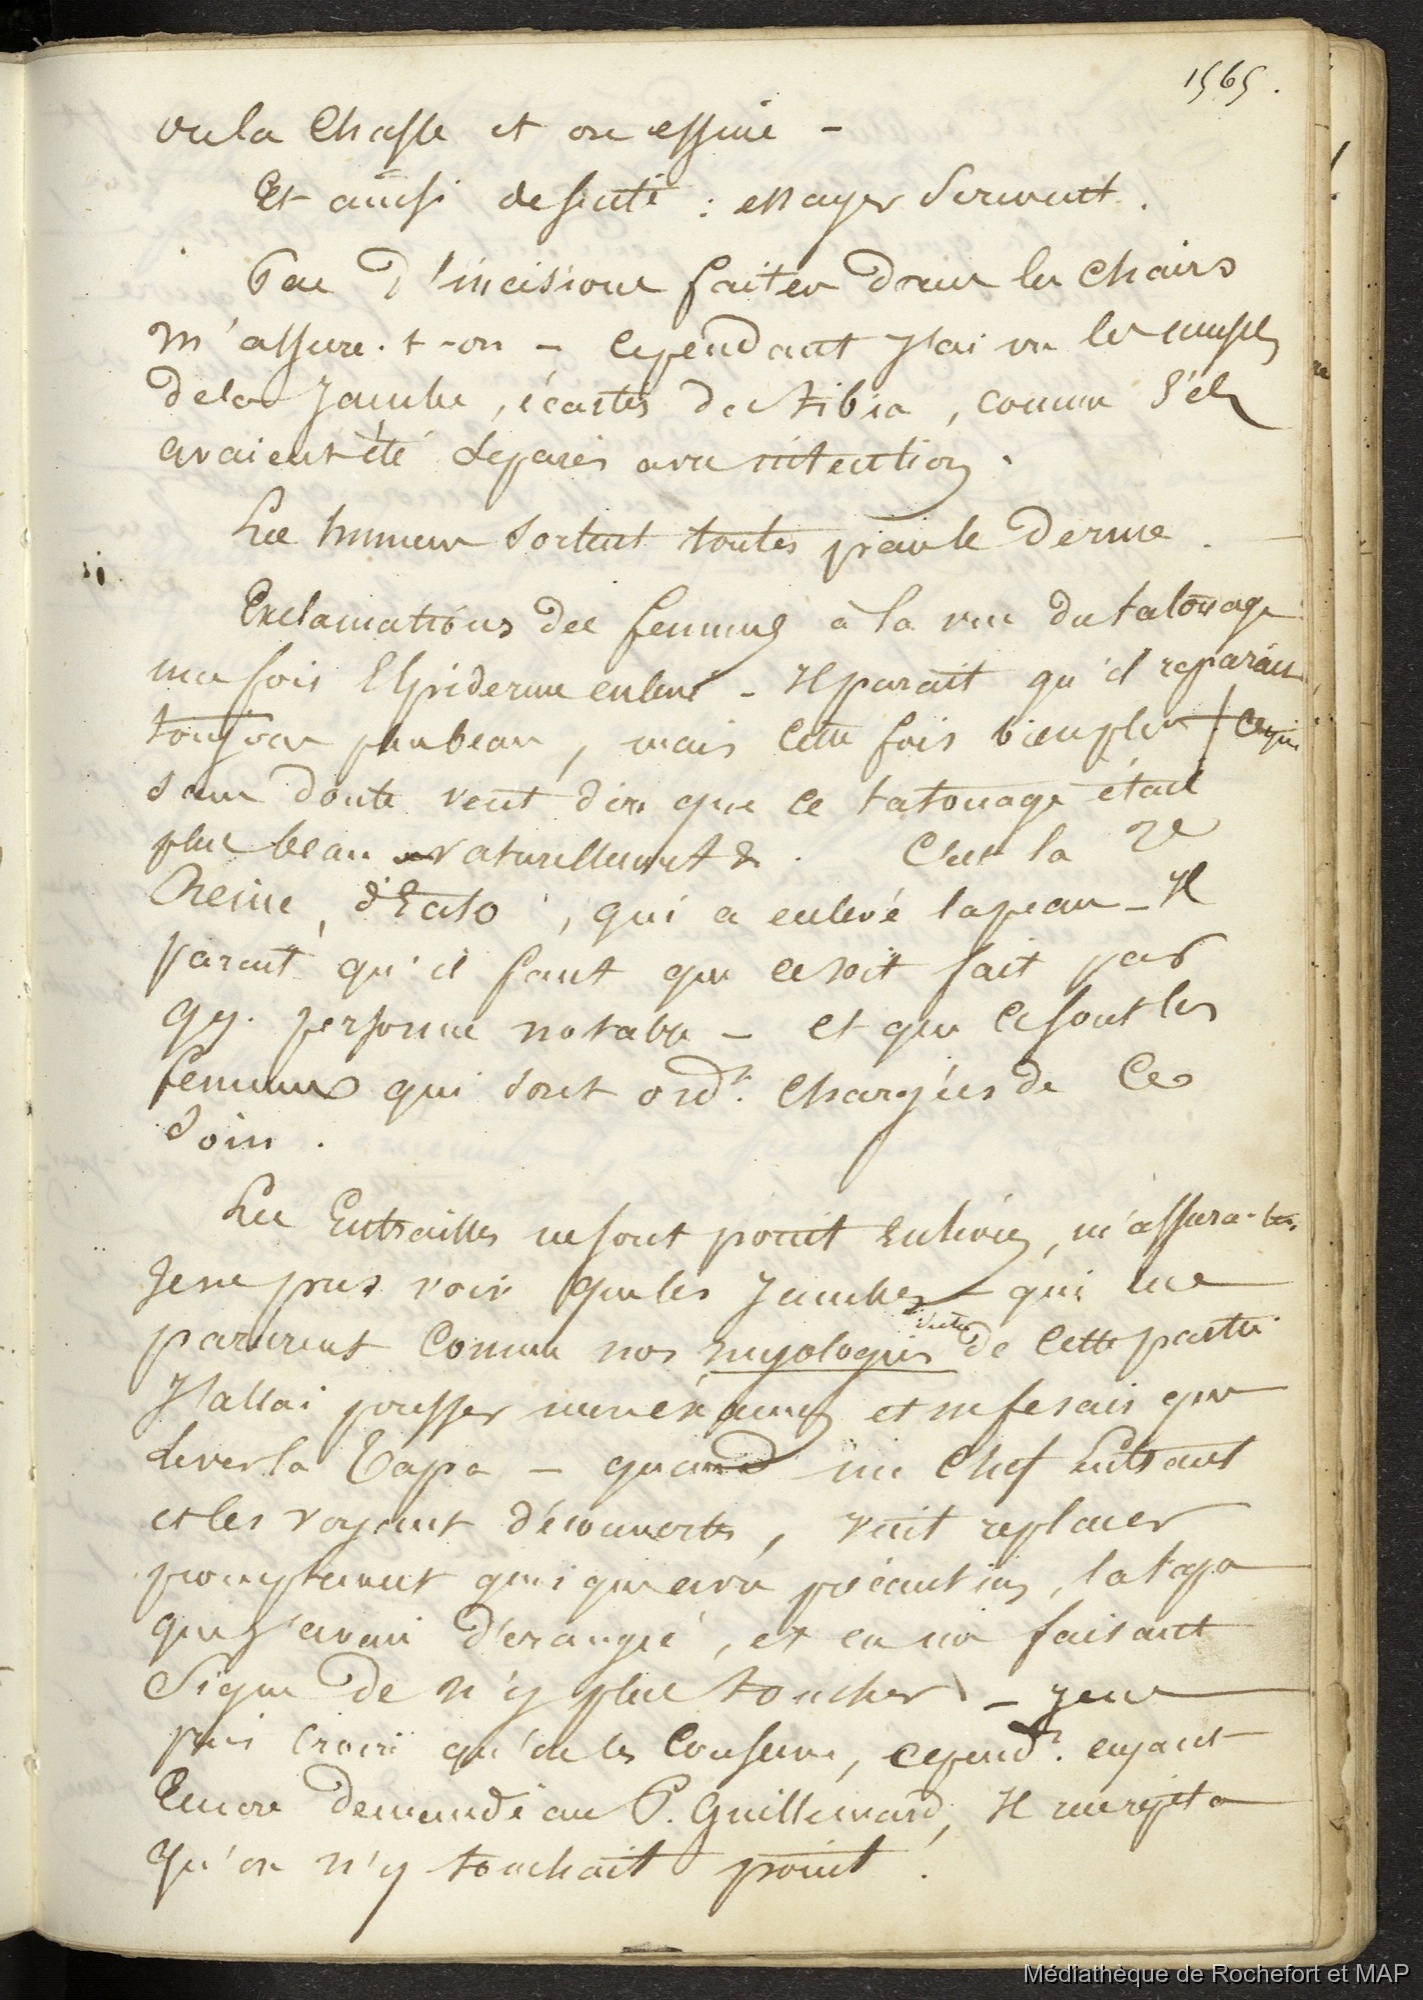 1565.
on la chasse et on essuie -
Et ainsi de suite : essayer souvent.
Pas d'incisions faites dans les chairs
m'assure-t-on - cependant j'ai vu les muscles
de la jambe, écartés du tibia, comme s'ils
avaient été séparés avec intention.
Les humeurs sortent toutes par le derme.
Exclamations des femmes à la vue du tatouage
une fois l'Epiderme enlevé - Il paraît qu'il reparaît
toujours plus beau, mais cette fois bien plus / ce qui
sans doute veut dire que ce tatouage était
plus beau naturellement &. C'est la
Reine, d'Eato, qui a enlevé la peau - Il
parait qu'il faut que ce soit fait par
qq. personne notable - et que ce sont les
femmes qui sont ordt. chargées de ce
soin.
Les Entrailles ne sont point enlevées, m'assura-t-on.
Je ne pus voir que les jambes - qui me
parurent comme nos myologies de cette partie
J'allai pousser mon examen et ne fesais que
lever la Tapa - quand un chef entrant
et les voyant découvertes, vint replacer
promptement quoique avec précaution, la tapa
que j'avais dérangée, et en me faisant
signe de n'y plus toucher - je ne
puis croire qu'on les conserve, cependt. ayant
Encore demandé au P. Guillemard, Il me répéta
qu'on n'y touchait point.
Médiathèque de Rochefort et MAP